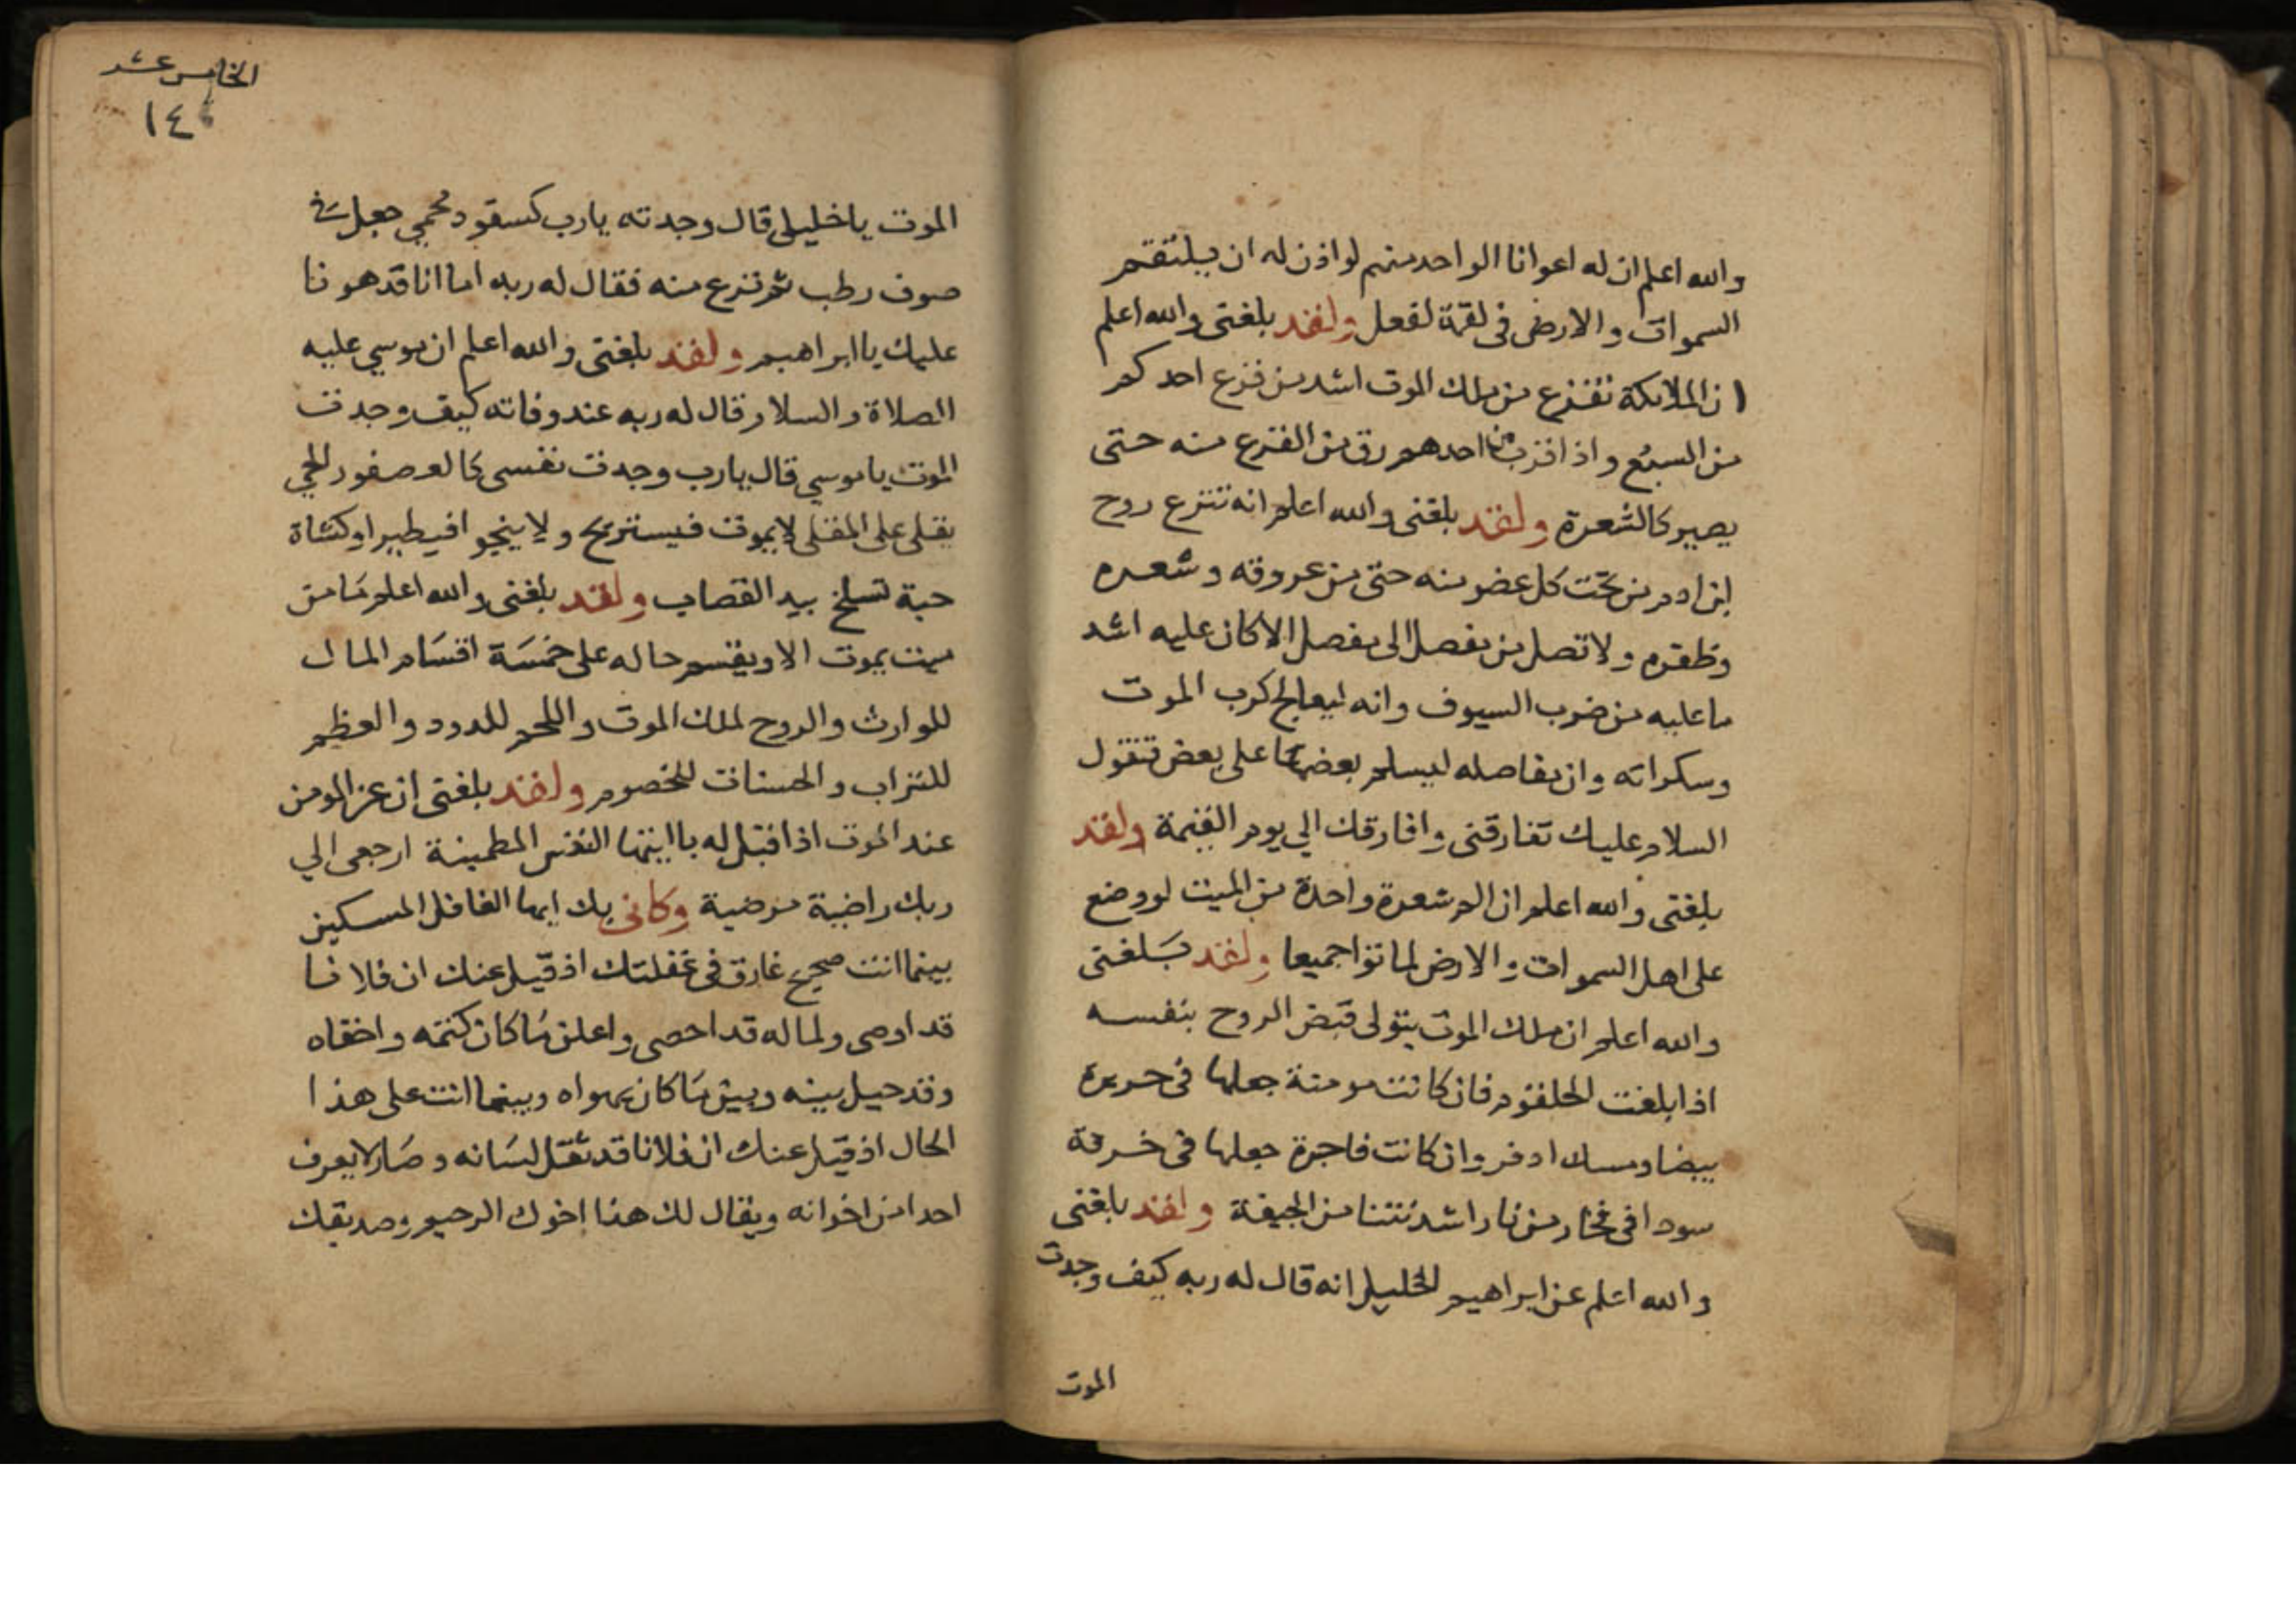 والله اعلم ان له اعوانا الواحد منهم لو اذن له ان يلتقم
السموات والارض في لقمة لفعل ولقد بلغني والله اعلم
ان الملائكة تفزع من ملك الموت اشد من فزع احدكم
من السبع واذا قرب من احدهم رق من الفزع منه حتى
يصير كالشعرة ولقد بلغني والله اعلم انه تنزع روح
ابن ادم من تحت كل عضو منه حتى من عروقه وشعره
وظفره ولا تصل من مفصل الى مفصل الا كان عليه اشد
ما عليه من ضرب السيوف وانه ليعالج كرب الموت
وسكراته وان مفاصله ليسلم بعضها على بعض تقول
السلام عليك تفارقني وافارقك الي يوم القيمة ولقد
بلغني والله اعلم ان الم شعرة واحدة من الميت لو وضع
على اهل السموات والارض لماتوا جميعا ولقد بلغني
والله اعلم ان ملك الموت يتولى قبض الروح بنفسه
اذا بلغت الحلقوم فان كانت مومنة جعلها في حريرة
بيضا ومسك ادفر وان كانت فاجرة جعلها في خرقة
سودا في فخار من نار اشد نتنا من الجيفة ولقد بلغني
والله اعلم عن ابراهيم الخليل انه قال له ربه كيف وجدت
الموت
الخامس عشر
١٤
الموت يا خليلي قال وجدته يارب كسفود محمي جعل في
صوف رطب ثم نزع منه فقال له ربه اما انا قد هونا
عليك يا ابراهيم ولقد بلغني والله اعلم ان موسي عليه
الصلاة والسلام قال له ربه عند وفاته كيف وجدت
الموت يا موسي قال يارب وجدت نفسى كالعصفور الحي
يقلى على المقلى لا يموت فيستريح ولا ينجو افيطير او كشاة
حية تسلخ بيد القصاب ولقد بلغني والله اعلم ما من
ميت يموت الا ويقسم حاله على خمسة اقسام المال
للوارث والروح لملك الموت واللحم للدود والعظم
للتراب والحسنات للخصوم ولقد بلغني ان عز المومن
عند الموت اذا قيل له يا ايتها النفس المطمينة ارجعى الي
ربك راضية مرضية وكاني بك ايها الغافل المسكين
بينما انت صحيح غارق في غفلتك اذ قيل عنك ان فلانا
قد اوصى ولماله قد احصى واعلن ما كان كتمه واخفاه
وقد حيل بينه وبين ما كان يهواه وبينما انت على هذا
الحال اذ قيل عنك ان فلانا قد ثقل لسانه وصار لا يعرف
احدا من اخوانه ويقال لك هذا اخوك الرحيم وصديقك